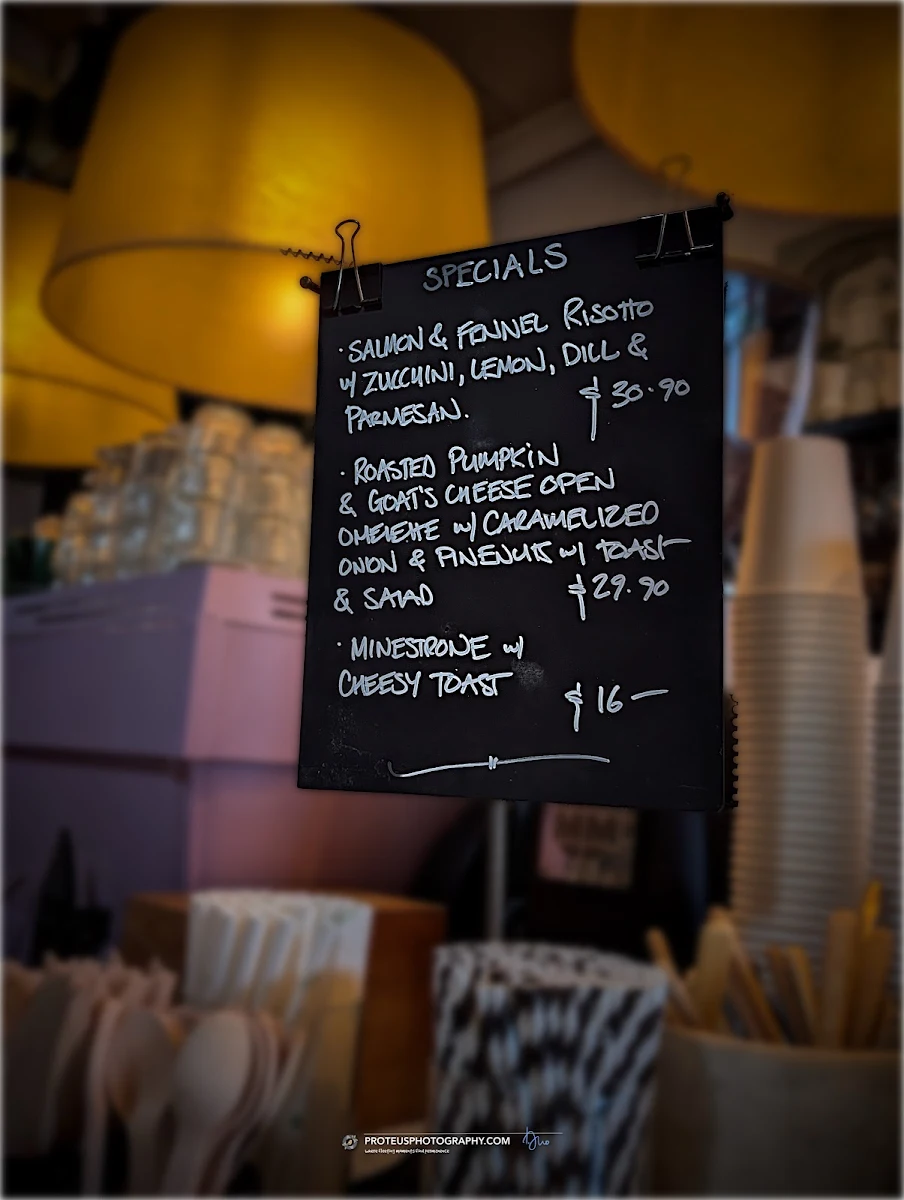 SPECIALS
· SALMON & FENNEL RISOTTO
w/ ZUCCHINI, LEMON, DILL &
PARMESAN. $30.90
· ROASTED PUMPKIN
& GOAT'S CHEESE OPEN
OMELETTE w/ CARAMELIZED
ONION & PINENUTS w/ TOAST
& SALAD $29.90
· MINESTRONE w/
CHEESY TOAST
$16—
PROTEUSPHOTOGRAPHY.COM
where fleeting moments find permanence